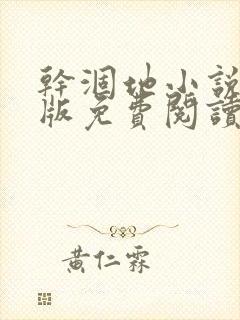 幹涸地小說
版免費閱讀
黃仁霖